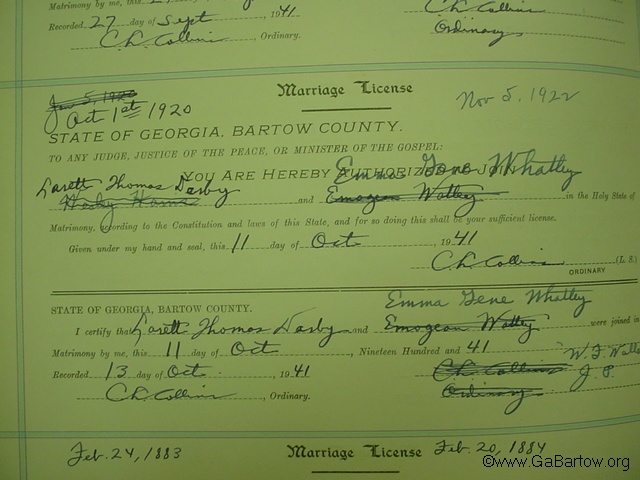 Matrimony by me, this
Recorded 27 day of Sept 1941
C. L. Collins, Ordinary.
C. L. Collins
Ordinary
Marriage License
Jan 5, 1920
Oct 1st 1920
Nov 5. 1922
STATE OF GEORGIA, BARTOW COUNTY.
TO ANY JUDGE, JUSTICE OF THE PEACE, OR MINISTER OF THE GOSPEL:
YOU ARE HEREBY AUTHORIZED TO JOIN
Emma Gene Whatley
Larett Thomas Dasby
and Emogean Watley in the Holy State of
Matrimony, according to the Constitution and laws of this State, and for so doing this shall be your sufficient license.
Given under my hand and seal, this 11 day of Oct, 1941
C. L. Collins (L. S.)
ORDINARY
STATE OF GEORGIA, BARTOW COUNTY.
Emma Gene Whatley
I certify that Larett Thomas Dasby and Emogean Watley were joined in
Matrimony by me, this 11 day of Oct, Nineteen Hundred and 41
W. F.
Recorded 13 day of Oct. 1941
C. L. Collins
J. P.
C. L. Collins, Ordinary.
Ordinary
Feb. 24, 1883
Marriage License
Feb. 20, 1884
©www.GaBartow.org